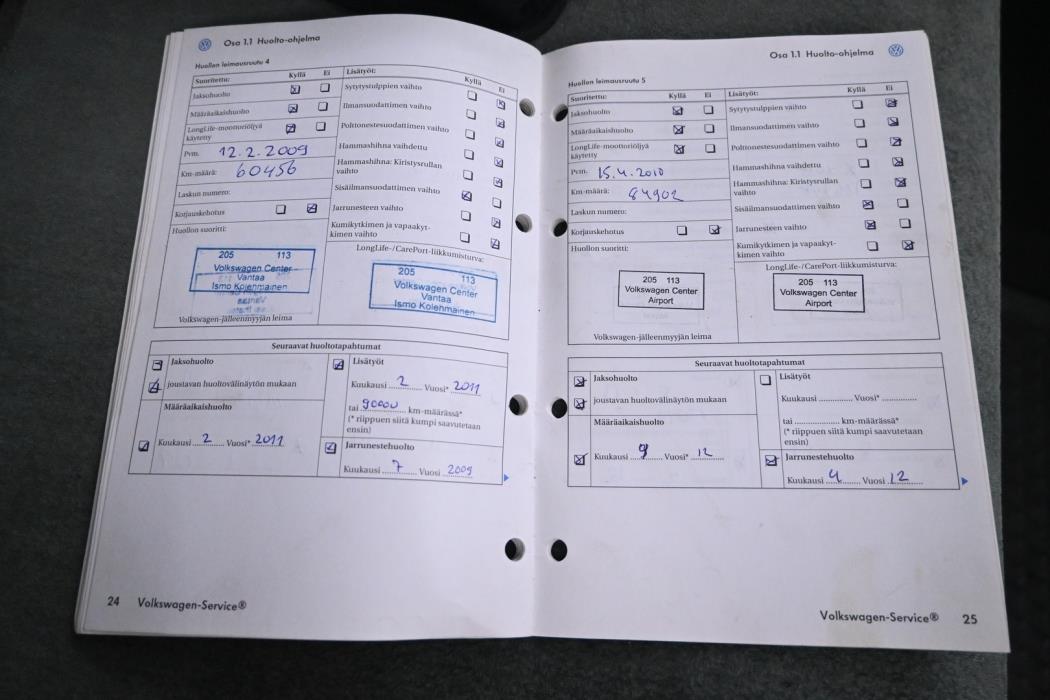 Osa 1.1 Huolto-ohjelma
Huollon leimausruutu 4
Suoritettu: Kyllä Ei Lisätyöt: Kyllä Ei
Jaksohuolto
Määräaikaishuolto
LongLife-moottoriöljyä
käytetty
Pvm. 12.2.2009
Km-määrä: 60456
Laskun numero:
Korjauskehotus
Huollon suoritti:
Sytytystulppien vaihto
Ilmansuodattimen vaihto
Polttonestesuodattimen vaihto
Hammashihna vaihdettu
Hammashihna: Kiristysrullan
vaihto
Sisäilmansuodattimen vaihto
Jarrunesteen vaihto
Kumikytkimen ja vapaakyt-
kimen vaihto
LongLife-/CarePort-liikkumisturva:
205 113
Volkswagen Center
Vantaa
Ismo Kolehmainen
205 113
Volkswagen Center
Vantaa
Ismo Kolehmainen
Volkswagen-jälleenmyyjän leima
Seuraavat huoltotapahtumat
Jaksohuolto
joustavan huoltovälinäytön mukaan
Määräaikaishuolto
Kuukausi 2 Vuosi* 2011
Lisätyöt
Kuukausi 2 Vuosi* 2011
tai 90000 km-määrässä*
(* riippuen siitä kumpi saavutetaan
ensin)
Jarrunestehuolto
Kuukausi 7 Vuosi 2009
24 Volkswagen-Service®
Osa 1.1 Huolto-ohjelma
Huollon leimausruutu 5
Suoritettu: Kyllä Ei Lisätyöt: Kyllä Ei
Jaksohuolto
Määräaikaishuolto
LongLife-moottoriöljyä
käytetty
Pvm. 15.4.2010
Km-määrä: 84902
Laskun numero:
Korjauskehotus
Huollon suoritti:
Sytytystulppien vaihto
Ilmansuodattimen vaihto
Polttonestesuodattimen vaihto
Hammashihna vaihdettu
Hammashihna: Kiristysrullan
vaihto
Sisäilmansuodattimen vaihto
Jarrunesteen vaihto
Kumikytkimen ja vapaakyt-
kimen vaihto
LongLife-/CarePort-liikkumisturva:
205 113
Volkswagen Center
Airport
205 113
Volkswagen Center
Airport
Volkswagen-jälleenmyyjän leima
Seuraavat huoltotapahtumat
Jaksohuolto
joustavan huoltovälinäytön mukaan
Määräaikaishuolto
Kuukausi 9 Vuosi* 12
Lisätyöt
Kuukausi Vuosi*
tai km-määrässä*
(* riippuen siitä kumpi saavutetaan
ensin)
Jarrunestehuolto
Kuukausi 4 Vuosi 12
Volkswagen-Service® 25